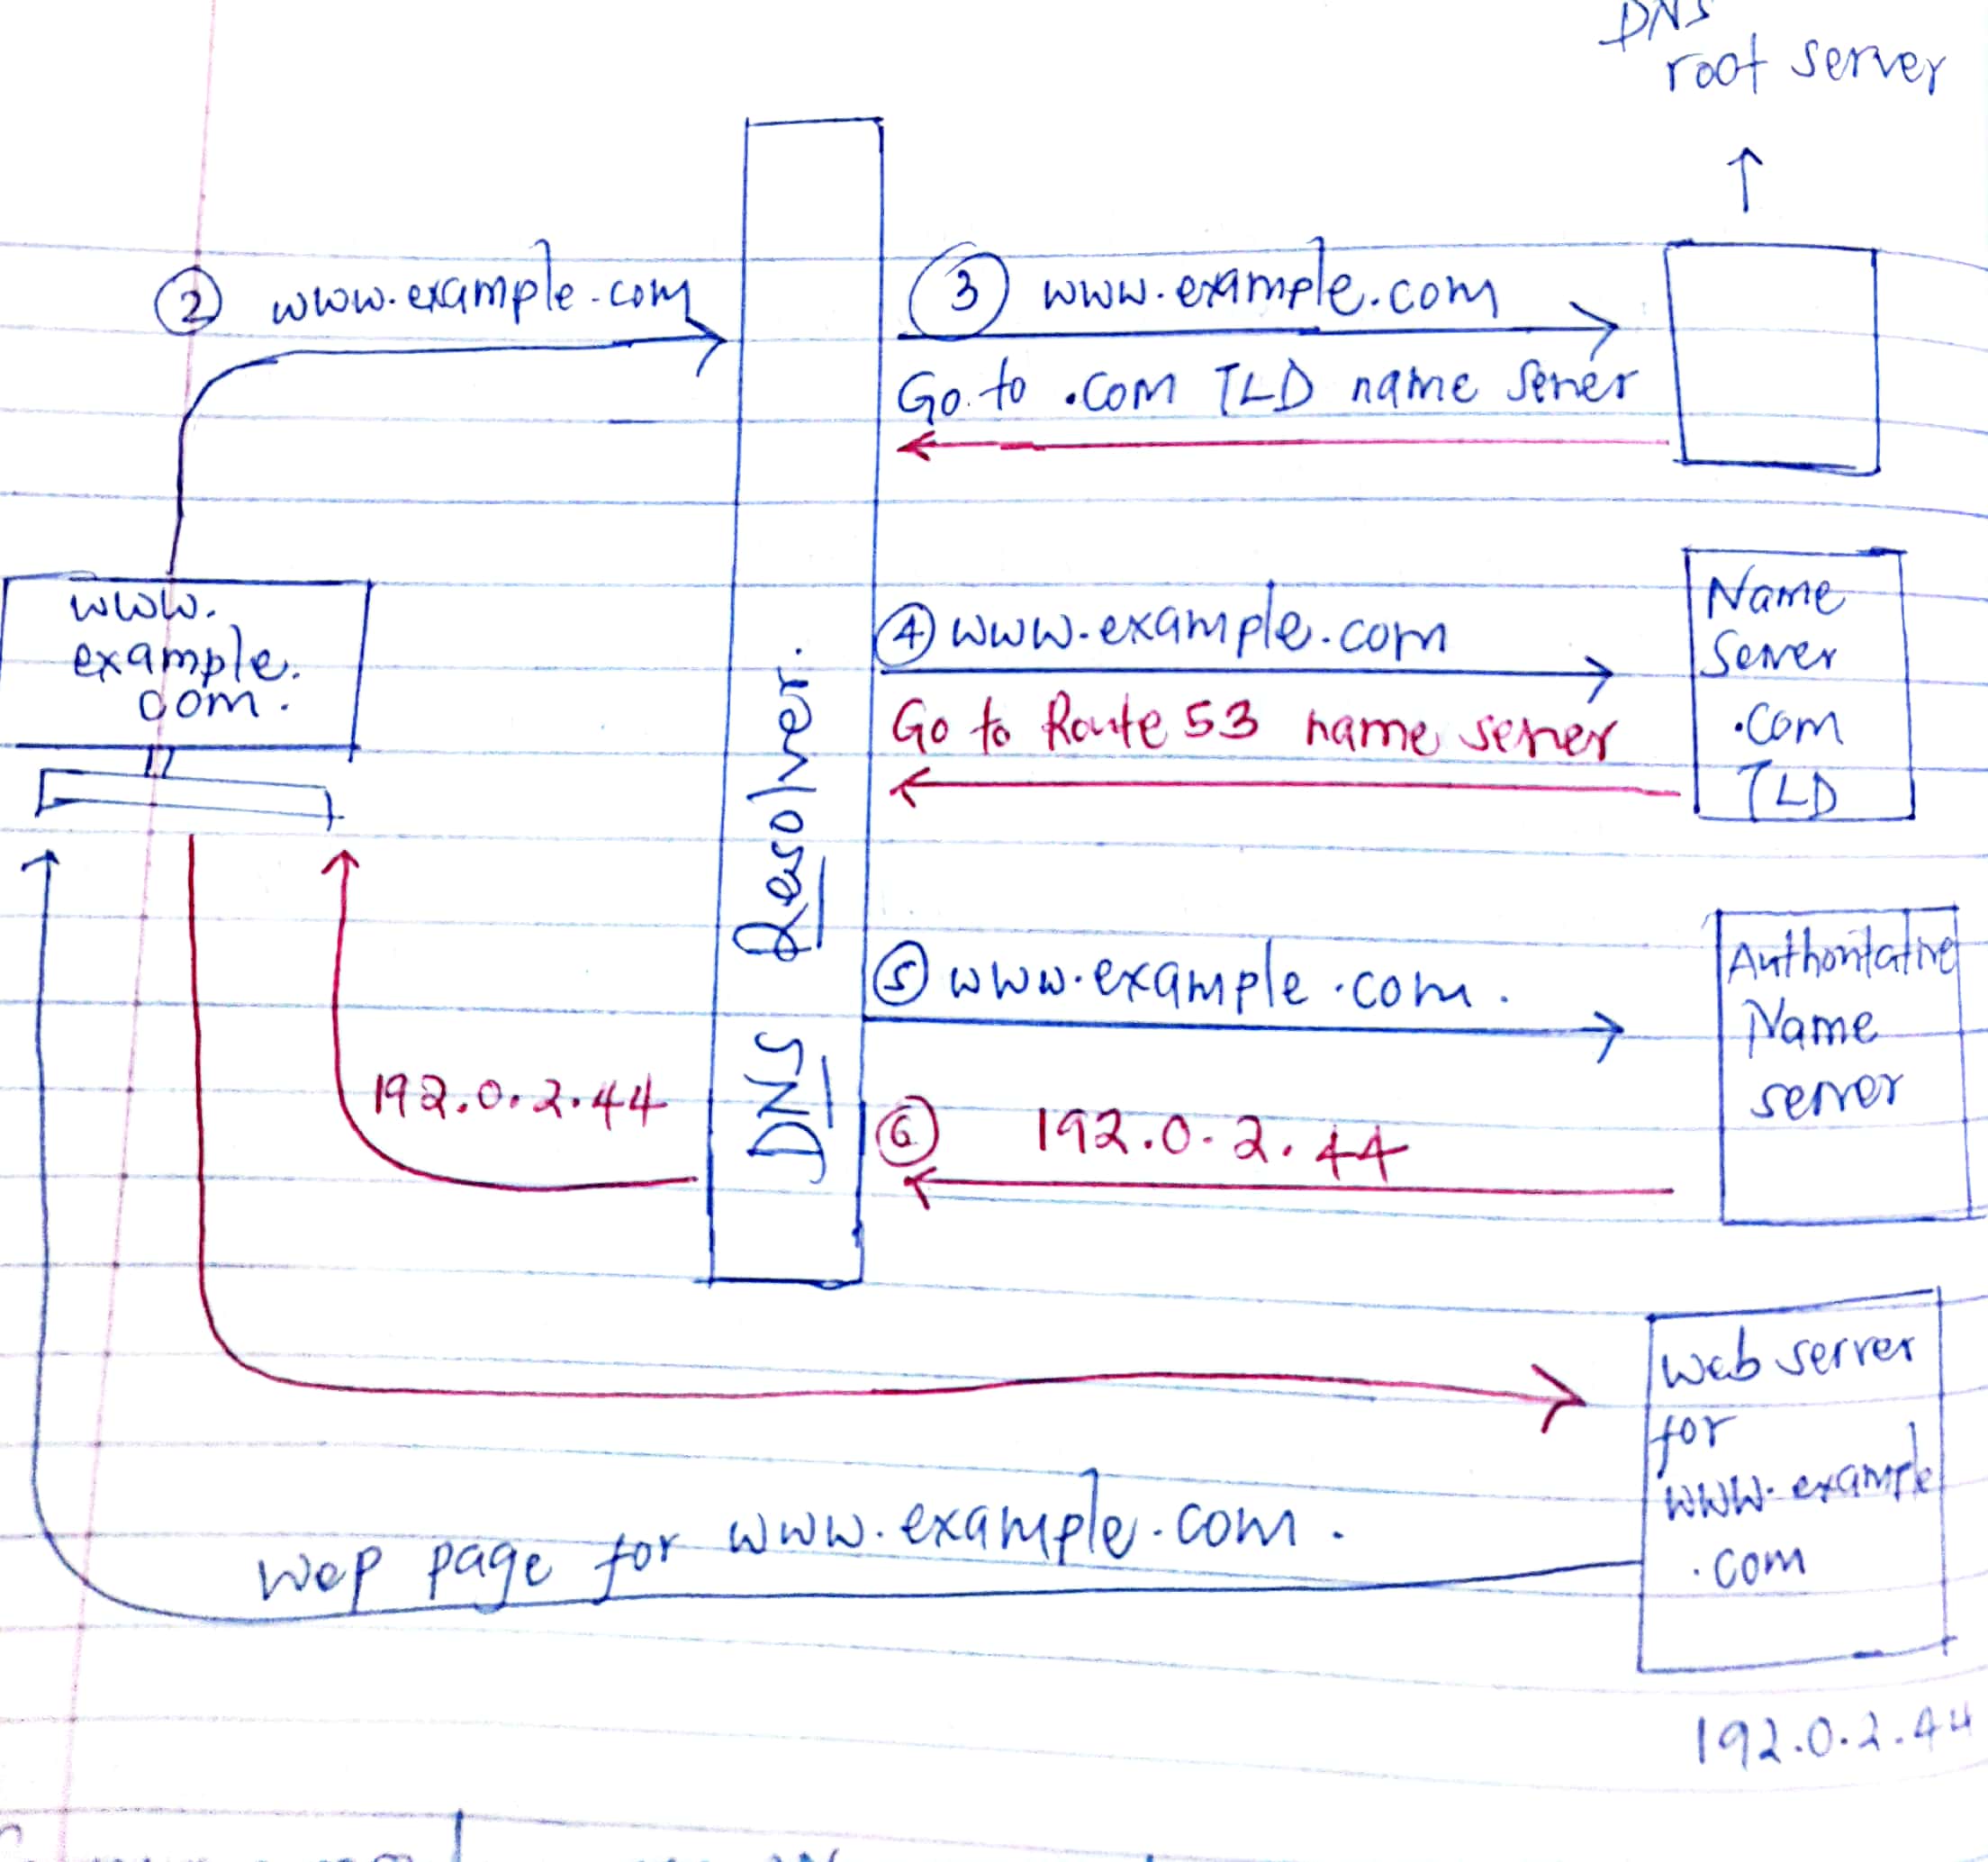 DNS
root server
② www.example.com
③ www.example.com
Go to .com TLD name server
www.
example.
com.
④ www.example.com
Go to Route 53 name server
Name
Server
.com
TLD
DNS Resolver.
⑤ www.example.com.
Authoritative
Name
server
192.0.2.44
⑥ 192.0.2.44
web server
for
www.example
.com
Wep page for www.example.com.
192.0.2.44